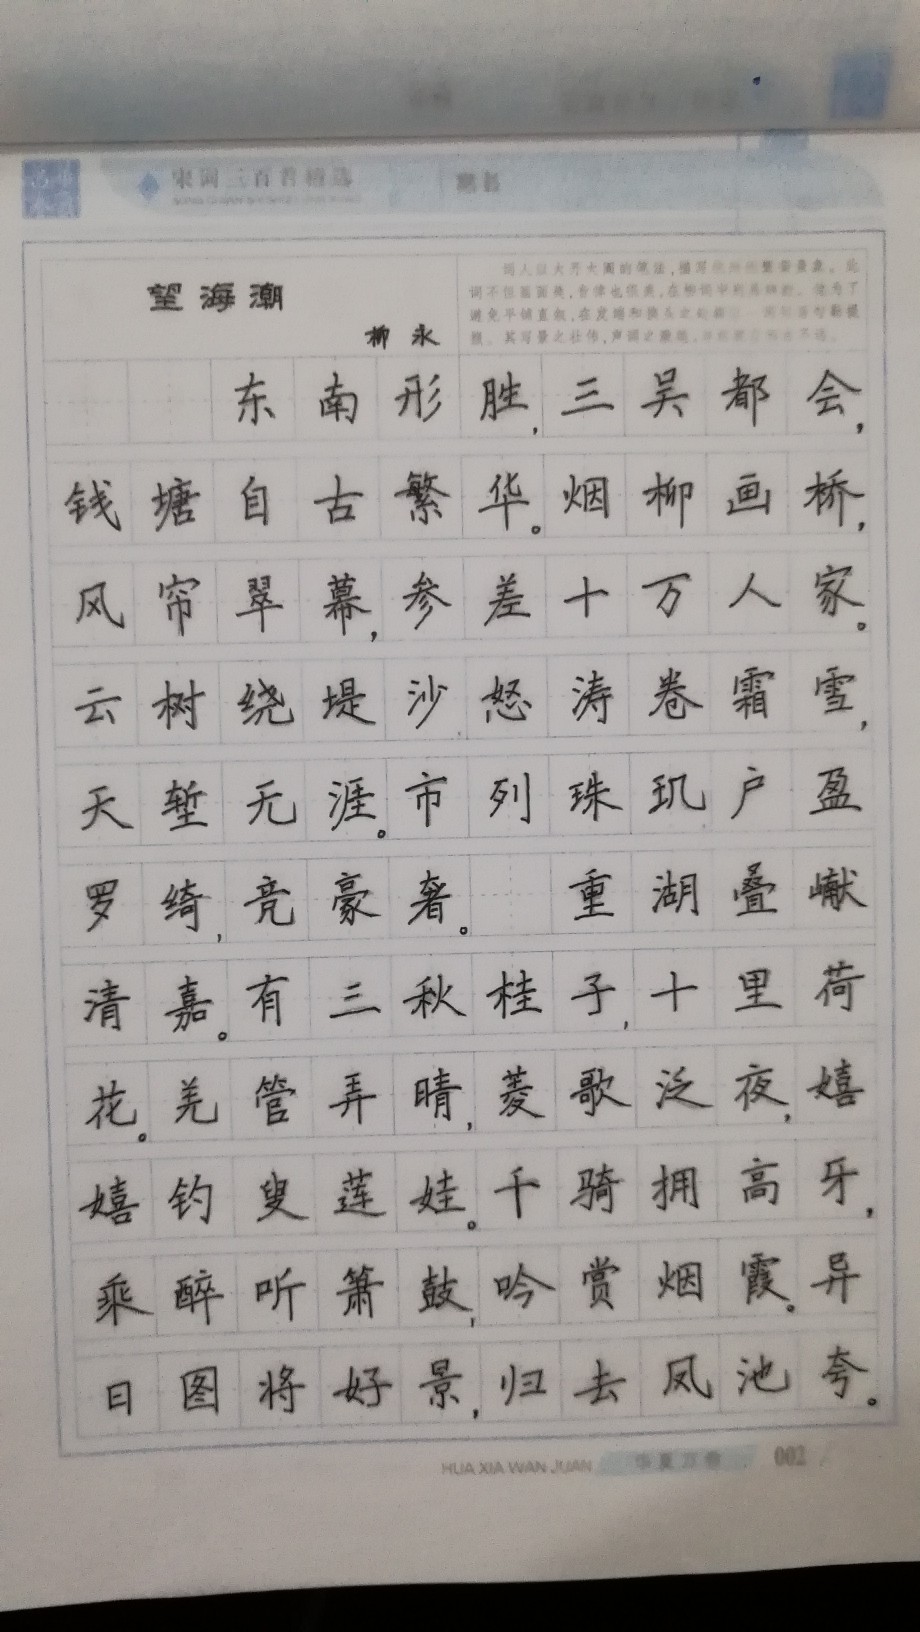 宋词三百首精选
楷书
望海潮
柳永
东南形胜,三吴都会,
钱塘自古繁华。烟柳画桥,
风帘翠幕,参差十万人家。
云树绕堤沙,怒涛卷霜雪,
天堑无涯。市列珠玑,户盈
罗绮,竞豪奢。 重湖叠巘
清嘉。有三秋桂子,十里荷
花。羌管弄晴,菱歌泛夜,嬉
嬉钓叟莲娃。千骑拥高牙,
乘醉听箫鼓,吟赏烟霞。异
日图将好景,归去凤池夸。
HUA XIA WAN JUAN 华夏万卷 002